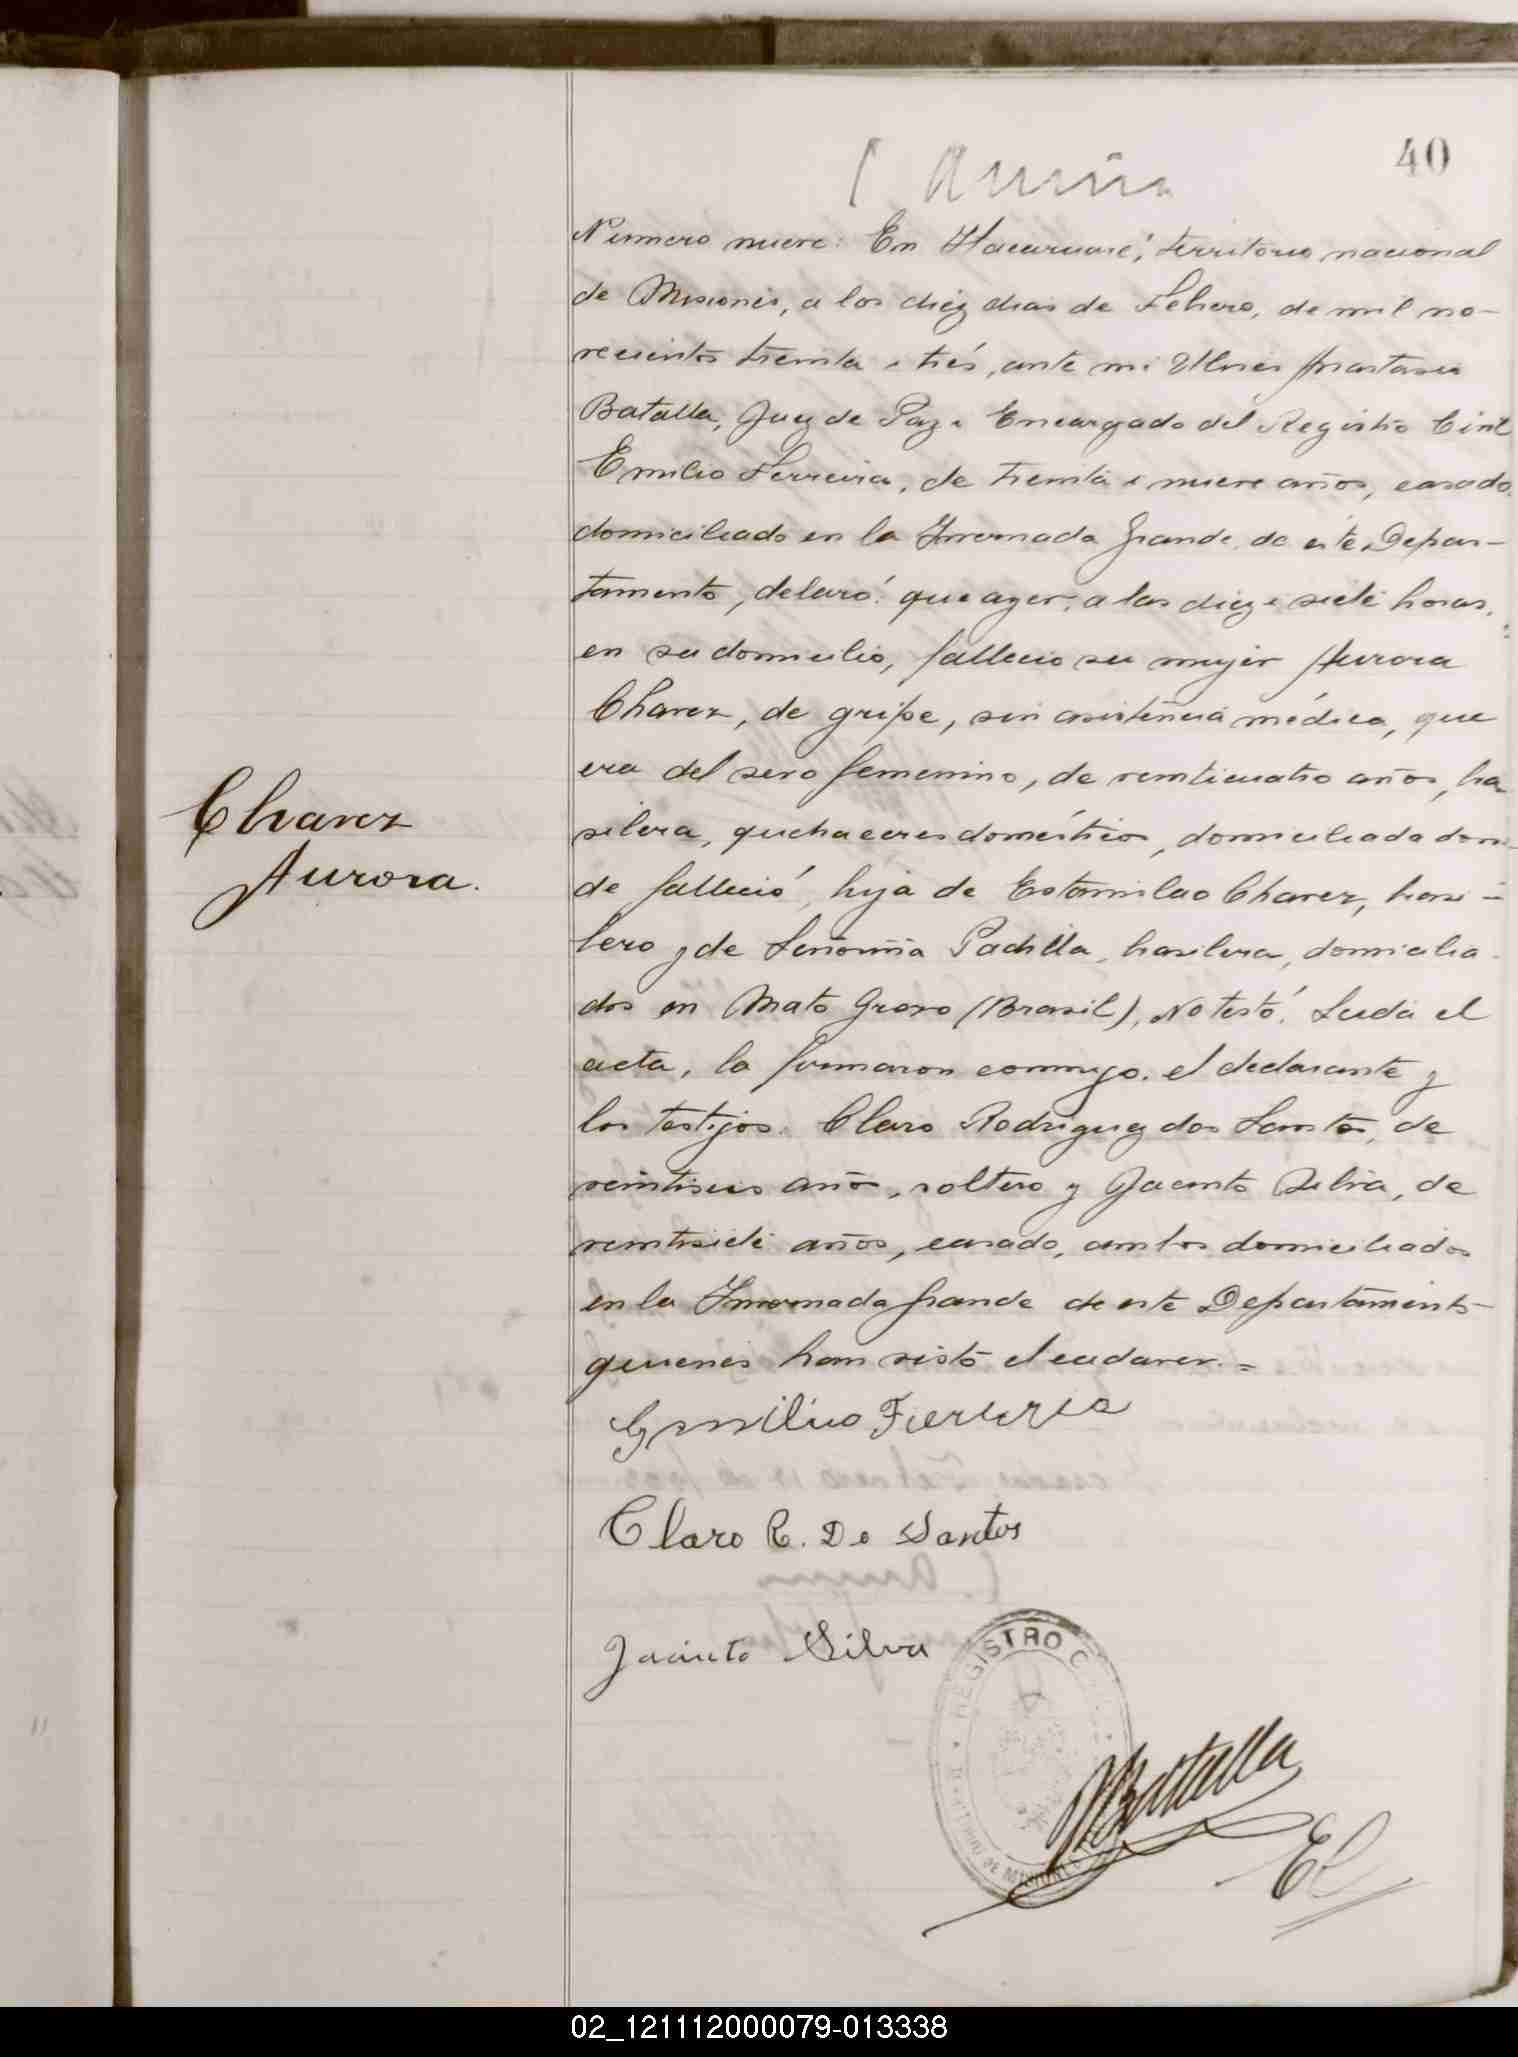 40
Número nueve: En Itacaruaré, territorio nacional
de Misiones, a los diez dias de Febrero, de mil no-
vecientos treinta i trés, ante mi Anastasio
Batalla, Juez de Paz i Encargado del Registro Civil
Emilio Ferreira, de treinta i nueve años, casado,
domiciliado en la Invernada Grande, de este Depar-
tamento, delaró: que ayer, a las diez i siete horas,
en su domicilio, fallecio su mujer Aurora
Chavez, de gripe, sin asistencia médica, que
era del sexo femenino, de veinticuatro años, bra
silera, quehaceres domésticos, domiciliada don-
Chavez
Aurora.
de falleció, hija de Estanislao Chavez, brasi-
lero y de Padilla, brasilera, domicilia
dos en Mato Groso (Brasil), No testó. Leida el
acta, la firmaron conmigo, el declarante y
los testijos. Claro Rodriguez dos Santos, de
veintiseis años, soltero y Jacinto Silva, de
veintisiete años, casado, ambos domiciliados
en la Invernada Grande de este Departamento
quienes han visto el cadaver. =
Emilio Ferreira
Claro R. Do Santos
Jacinto Silva
REGISTRO C
Batalla
02_121112000079-013338